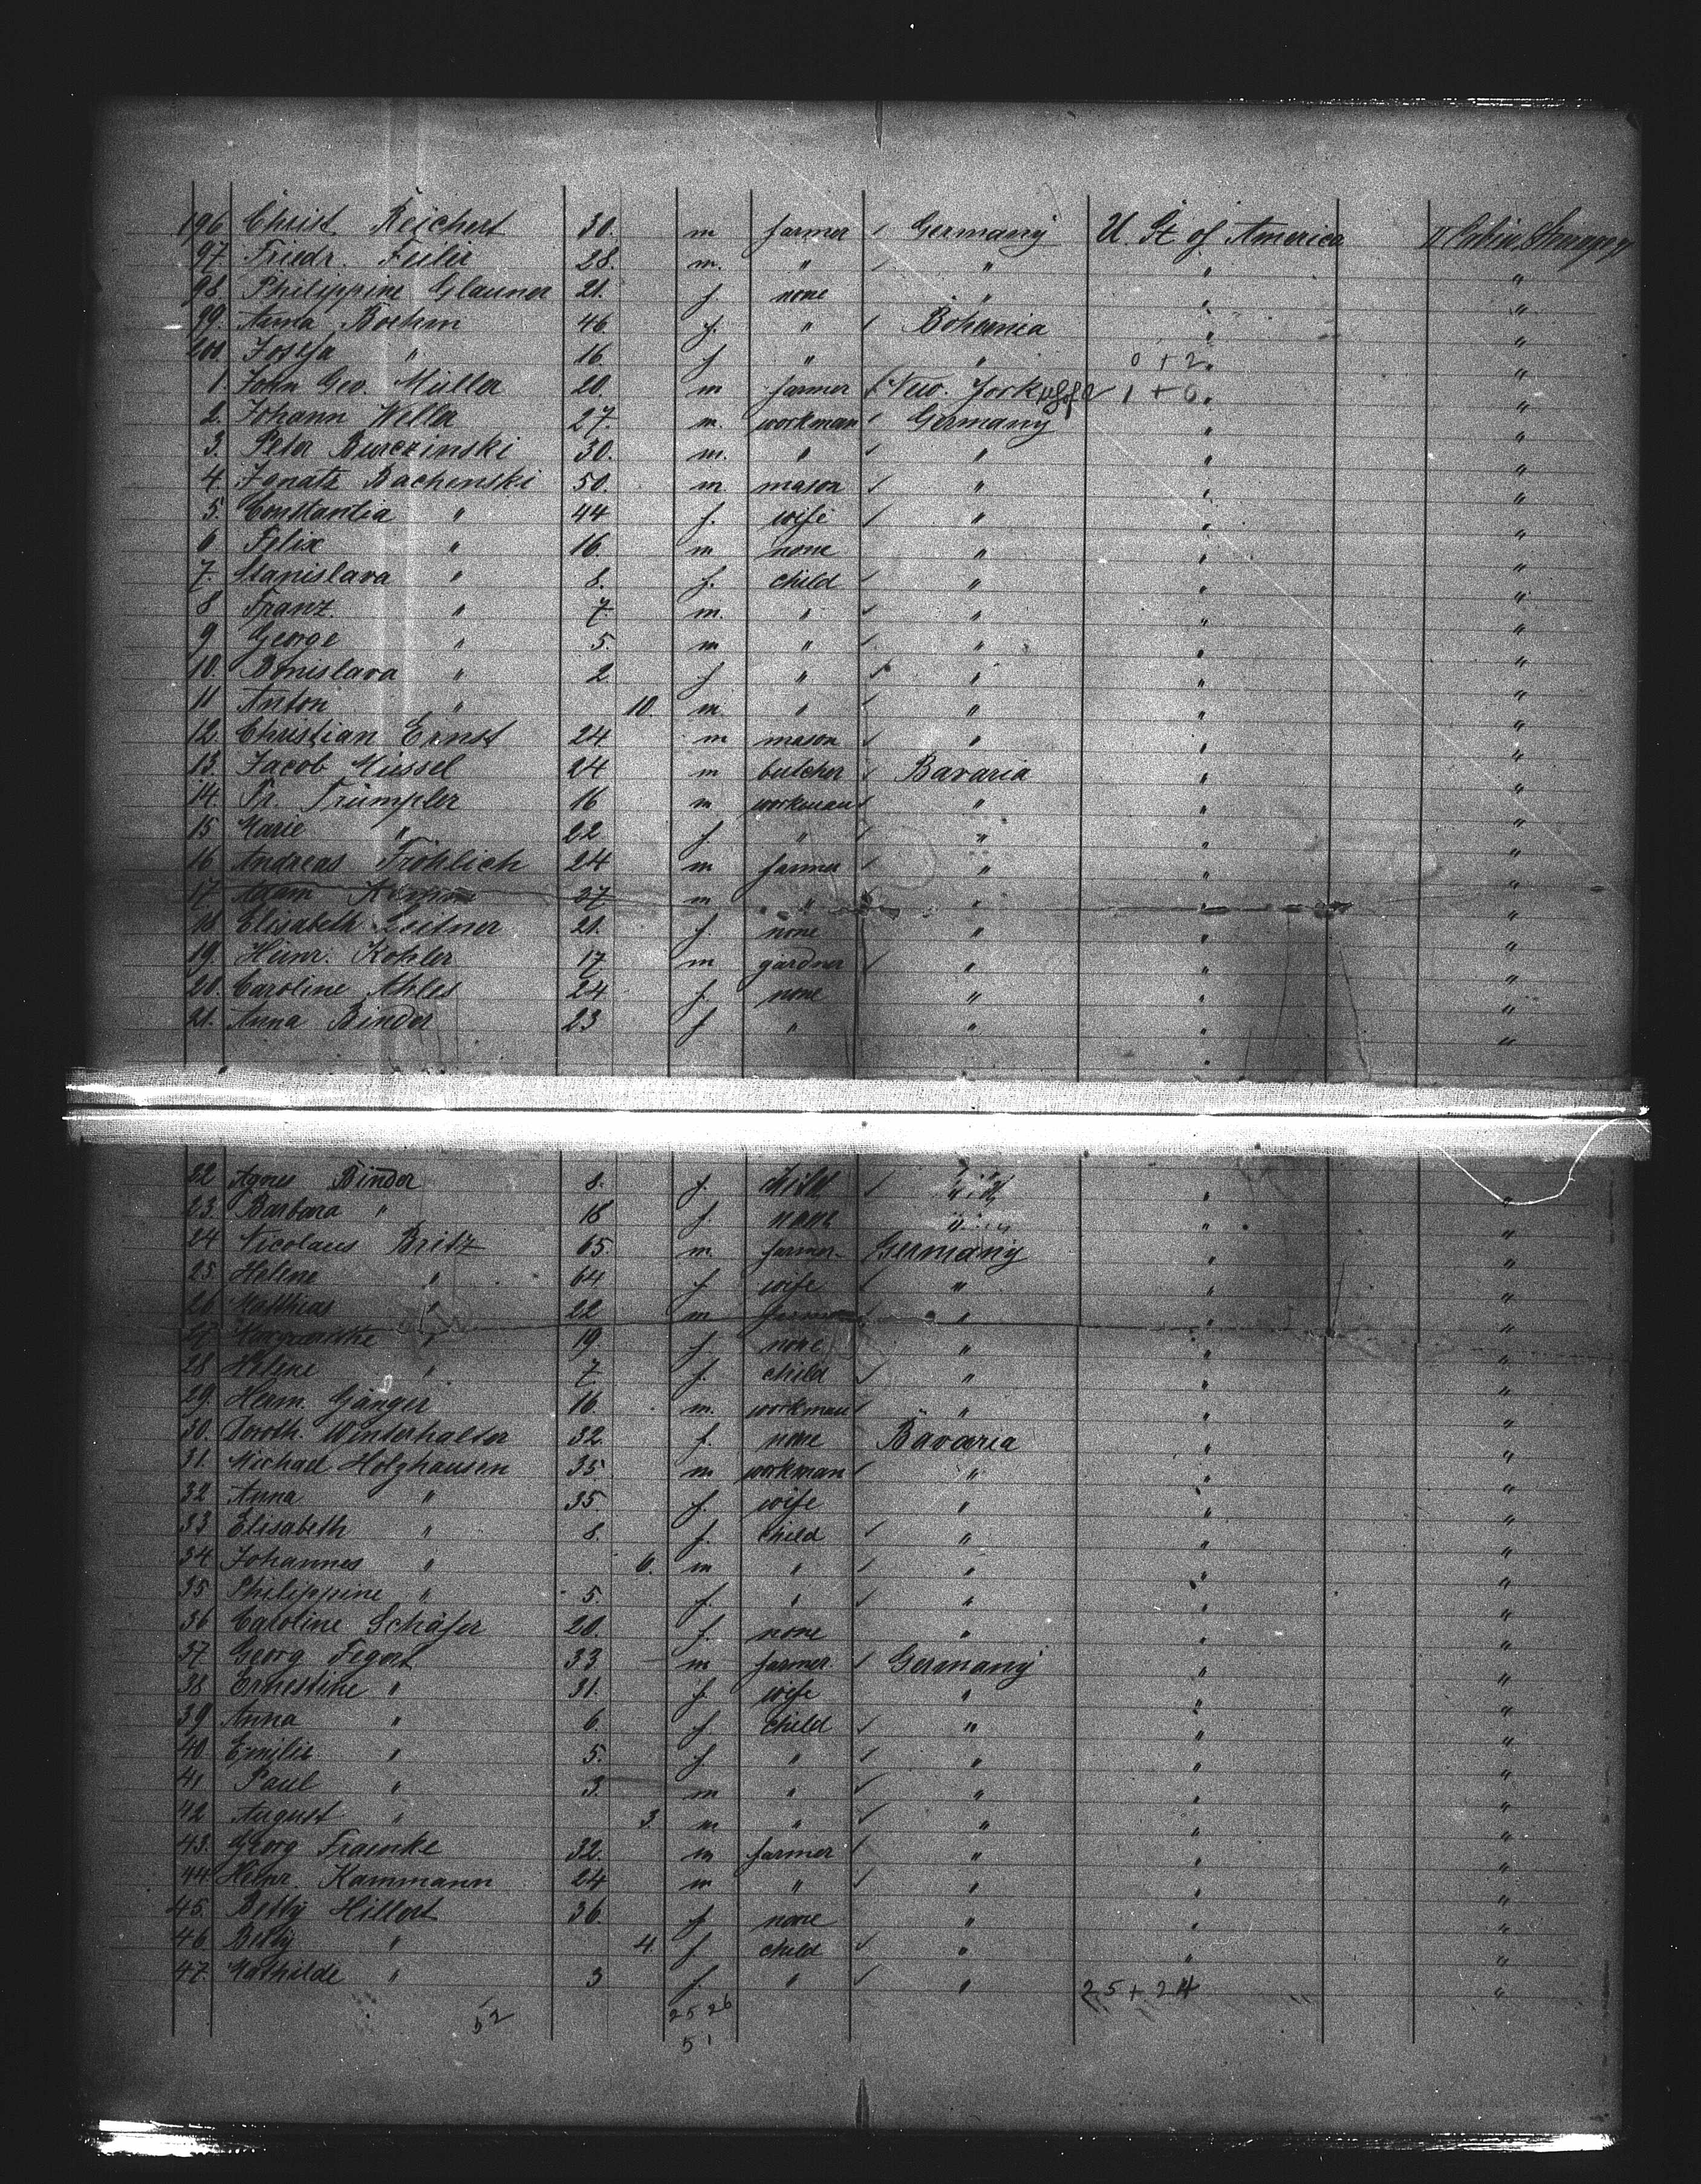 196 Christ. Reichert 30. m farmer / Germany U. St of America II Cabin Steerage
97. Friedr. Feiler 28. m. " / " " "
98. Philippine Glauner 21. f. none " " "
99. Anna Boehm 46. f. " / Bohemia " "
200. Josefa " 16. f " " 0 + 2 " "
1. John Geo. Müller 20. m farmer / New. York 1 + 0 " "
2. Johann Weller 27. m. workman / Germany " "
3. Peter Burczinski 30. m. " / " " "
4. Ignatz Bachenski 50. m. mason / " " "
5. Constantia " 44 f. wife / " " "
6 Felix " 16. m none " " "
7. Stanislava " 8. f. child / " " "
8 Franz " 7. m. " / " " "
9 George " 5. m " / " " "
10. Bronislava " 2. f " / " " "
11 Anton " 10. m. " / " " "
12. Christian Ernst 24 m mason / " " "
13. Jacob Müssel 24 m butcher / Bavaria " "
14. Fr. Trümpler 16 m workman / " " "
15 Marie " 22 f " / " " "
16 Andreas Fröhlich 24 m farmer / " " "
17 Adam 27 m " " " "
18 Elisabeth Leitner 21. f none " " "
19. Heinr. Kohler 17 m gardner / " " "
20. Caroline Ahles 24 f. none " " "
21. Anna Binder 23 f " " " "
22 Agnes Binder 8. f. child / " " "
23. Barbara " 18 f. none " " "
24 Nicolaus Britz 65. m. farmer Germany " "
25. Helene " 64 f wife / " " "
26 Matthias " 22 m farmer / " " "
27 " 19 f none " " "
28 Helene " 7 f. child / " " "
29. Herm. Gänger 16. m. workman / " " "
30. Doroth. Winterhalter 32. f. none Bavaria " "
31. Michael Holzhausen 35. m workman / " " "
32 Anna " 35. f. wife " " "
33 Elisabeth " 8. f. child / " " "
34. Johannes " 6. m " / " " "
35 Philippine " 5. f. " / " " "
36 Caroline Schäfer 20. f. none " " "
37 Georg Fegert 33 m farmer / Germany " "
38 Ernestine " 31. f. wife " " "
39 Anna " 6. f child / " " "
40. Emilie " 5. f. " / " " "
41. Paul " 3. m " / " " "
42 August " 3. m " / " " "
43. Georg Framke 32. m farmer / " " "
44. Heinr. Kammann 24 m " / " " "
45. Betty Hillert 36. f none " " "
46. Betty " 4 f child / " " "
47. Mathilde " 3 f. " / " 25 + 24 "
52 25 26
51